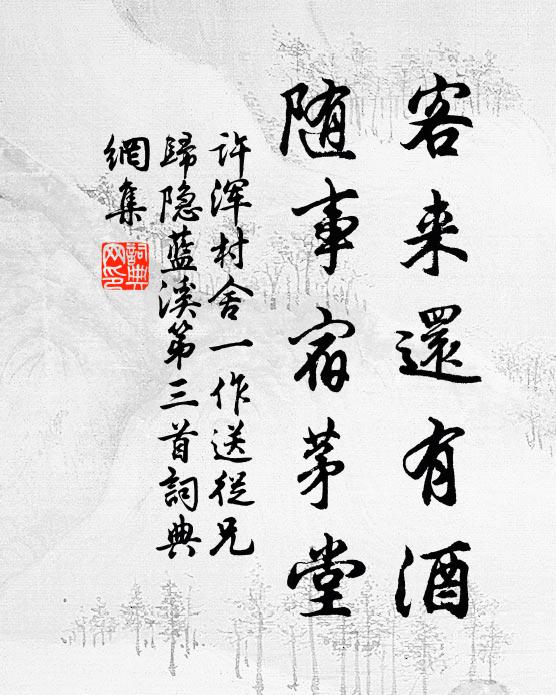 客来還有酒
随事宿茅堂
许浑村舍一作送從兄
歸隐蓝溪第三首詞典
網集
詞典
网印